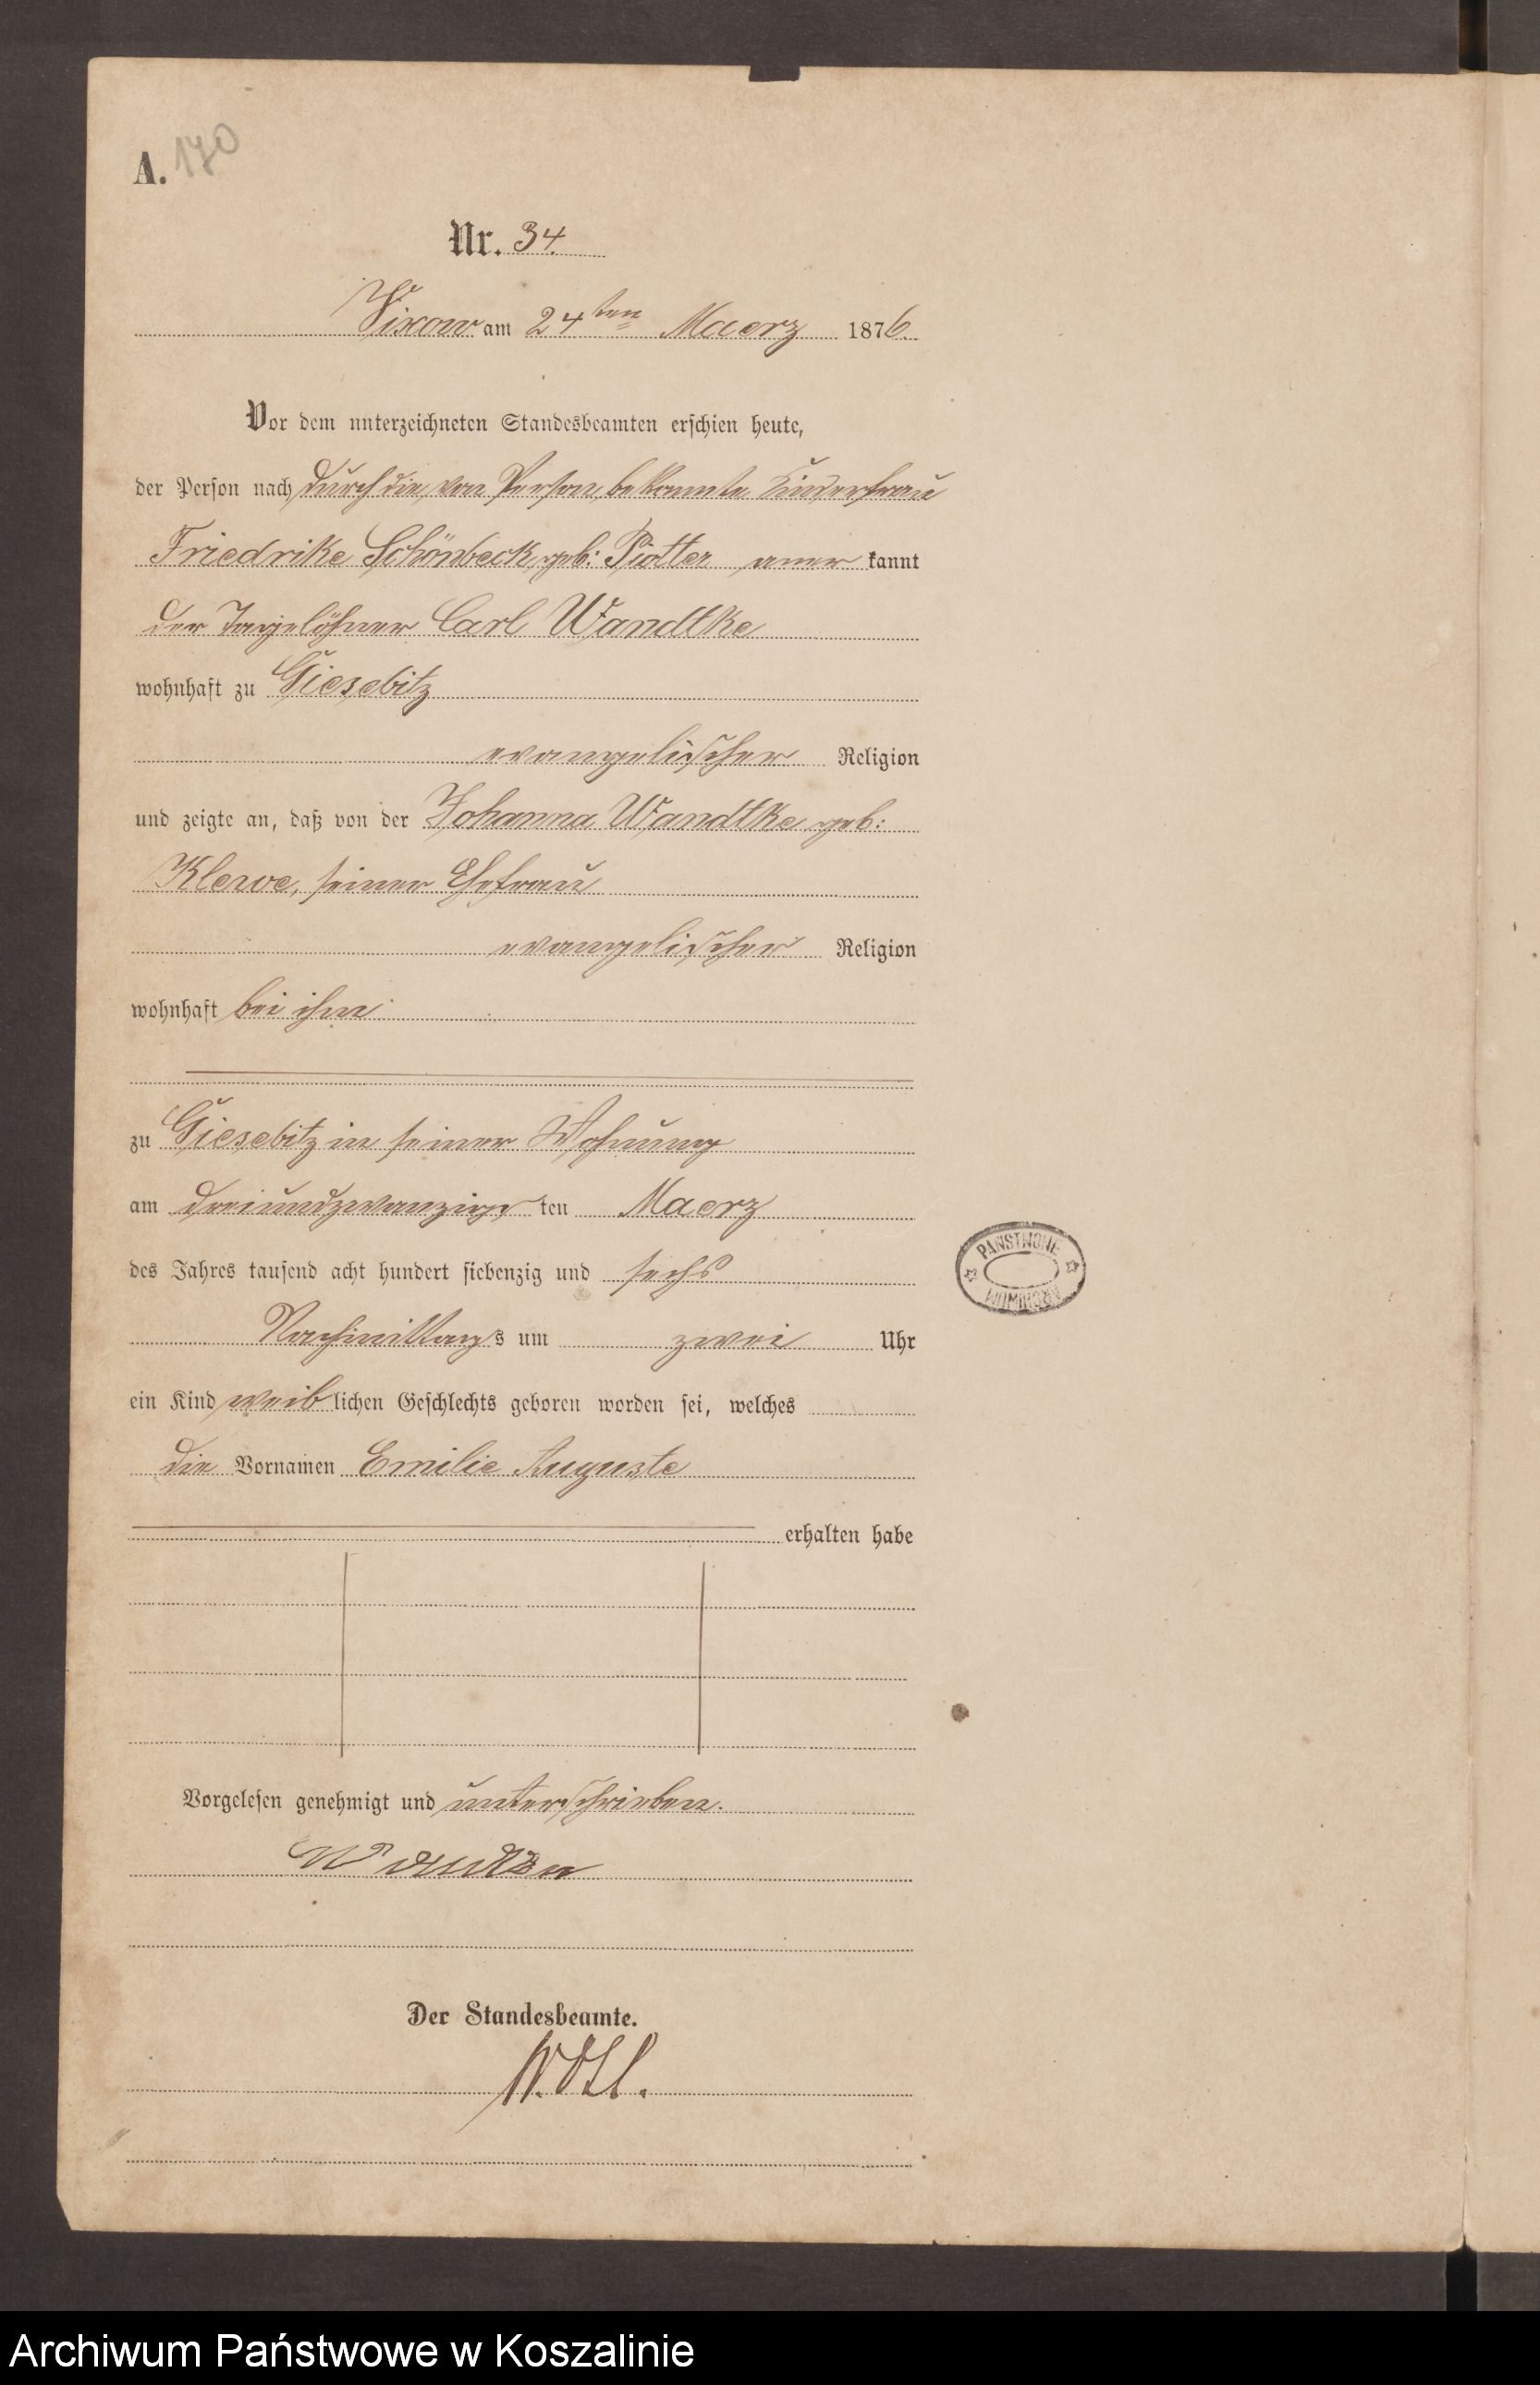 A. 170
Nr. 34.
Vixow am 24ten Maerz 1876.
Vor dem unterzeichneten Standesbeamten erschien heute,
der Person nach durch die, von Person bekannte Kinderfrau
Friedrike Schönbeck, geb: Piotter aner kannt
der Tagelöhner Carl Wandtke
wohnhaft zu Giesebitz
evangelischer Religion
und zeigte an, daß von der Johanna Wandtke geb:
Klewe, seiner Ehefrau
evangelischer Religion
wohnhaft bei ihm
zu Giesebitz in seiner Wohnung
am dreiundzwanzigs ten Maerz
des Jahres tausend acht hundert siebenzig und sechs
Nachmittags um zwei Uhr
ein Kind weiblichen Geschlechts geboren worden sei, welches
die Vornamen Emilie Auguste
erhalten habe
PAŃSTWOWE
ARCHIWUM
Vorgelesen genehmigt und unterschrieben.
Der Standesbeamte.
Archiwum Państwowe w Koszalinie